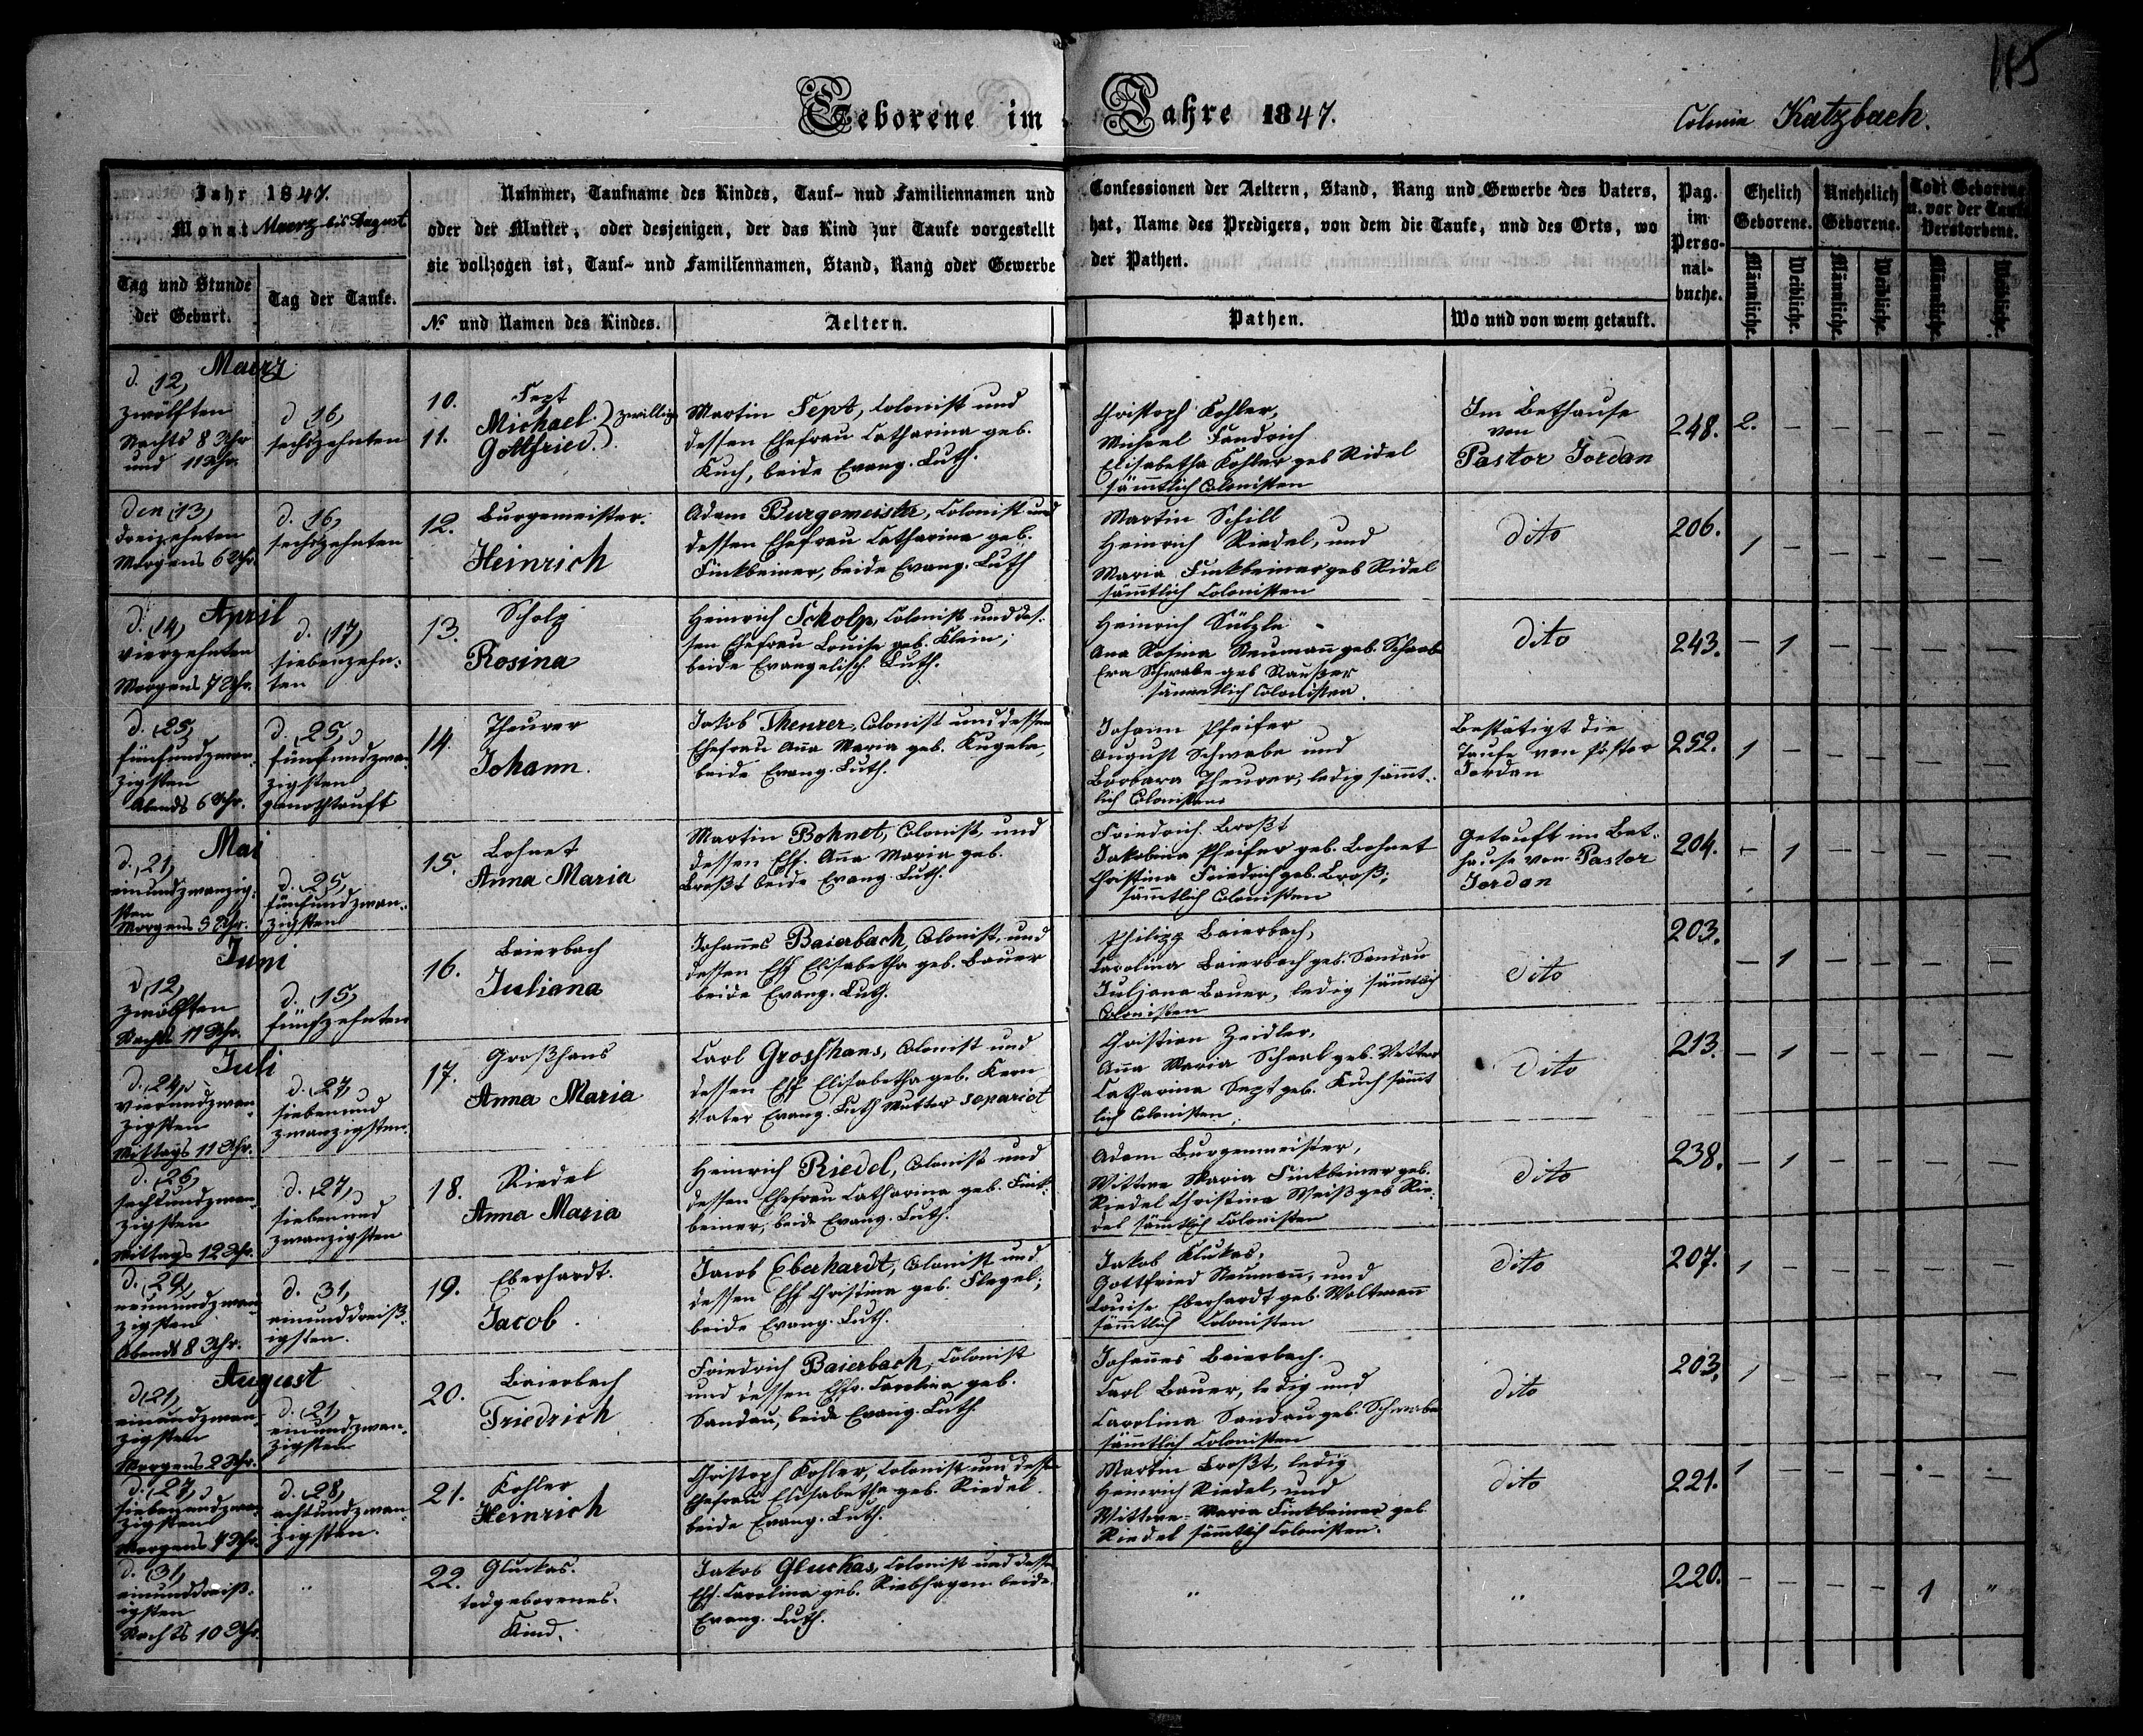 115
Geborene im Jahre 1847.
Colonie Katzbach.
Jahr 1847.
Monat Maerz bis August
Tag und Stunde der Geburt.
Tag der Taufe.
Nummer, Taufname des Kindes, Tauf- und Familiennamen und Confessionen der Aeltern, Stand, Rang und Gewerbe des Vaters,
oder der Mutter, oder desjenigen, der das Kind zur Taufe vorgestellt hat, Name des Predigers, von dem die Taufe, und des Orts, wo
sie vollzogen ist, Tauf- und Familiennamen, Stand, Rang oder Gewerbe der Pathen.
№ und Namen des Kindes.
Aeltern.
Pathen.
Wo und von wem getauft.
Pag. im Perso- nal- buche.
Ehelich Geborene.
Unehelich Geborene.
Todt Geborene u. vor der Taufe Verstorbene.
Männliche. Weibliche. Männliche. Weibliche. Männliche. Weibliche.
Maerz
d. (12)
zwölften
Nachts 8 Uhr
und 11 Uhr.
d. (16)
sechszehnten
10. Sept
Michael.) Zwillige
11. Gottfried.)
Martin Sept, Colonist und
dessen Ehefrau Catharina geb.
Kuch, beide Evang. Luth.
Christoph Kohler,
Michael Fandrich
Elisabetha Kohler geb Ridel
sämmtlich Colonisten
Im Bethause
von
Pastor Jordan
248. 2. — — — — —
den (13)
dreizehnten
Morgens 6 Uhr.
d. (16)
sechszehnten
12. Burgemeister.
Heinrich
Adam Burgemeister, Colonist und
dessen Ehefrau Catharina geb.
Finkbeiner, beide Evang. Luth
Martin Schill
Heinrich Riedel, und
Maria Finkbeiner geb Ridel
sämtlich Colonisten
dito
206. 1 — — — — —
April
d. (14)
vierzehnten
Morgens 7 Uhr.
d. (17)
siebenzehn-
ten
13. Scholp
Rosina
Heinrich Scholp, Colonist und des-
sen Ehefrau Louise geb. Klein,
beide Evangelisch Luth.
Heinrich Sülzle
Ana Rosina Neumañ geb. Schaab
Eva Schwabe geb Nauser
sämmtlich Colonisten.
dito
243. — 1 — — — —
d. (25)
fünfundzwan-
zigsten
Abends 6 Uhr.
d. (25)
fünfundzwan-
zigsten
genothtauft
14. Theurer
Johann.
Jakob Theurer, Colonist und dessen
Ehefrau Aña Maria geb. Kugele,
beide Evang. Luth.
Johann Pfeifer
August Schwabe und
Barbara Theurer, ledig sämt-
lich Colonisten
Bestätigt die
Taufe von Pastor
Jordan
252. 1 — — — — —
Mai
d. (21)
einundzwanzig-
sten
Morgens 5 Uhr.
d. 25,
fünfundzwan-
zigsten
15. Bohnet
Anna Maria
Martin Bohnet, Colonist, und
dessen Ehf. Aña Maria geb.
Broßt beide Evang. Luth.
Friedrich Broßt
Jakobina Pfeifer geb. Bohnet
Christina Friedrich geb. Broß,
sämtlich Colonisten
Getauft im Bet-
hause von Pastor
Jordan
204. — 1 — — — —
Juni
d (12)
zwölften
Nachts 11 Uhr.
d. (15)
fünfzehnten
16. Baierbach
Juliana
Johañes Baierbach, Colonist, und
dessen Ehf Elisabetha geb. Bauer
beide Evang. Luth.
Philipp Baierbach,
Carolina Baierbach geb. Sandau
Juliana Bauer, ledig sämtlich
Colonisten
dito
203. — 1 — — — —
Juli
d. (24)
vierundzwan-
zigsten
Mittags 11 Uhr.
d. (27)
siebenund
zwanzigsten
17. Großhans
Anna Maria
Carl Grosshans, Colonist und
dessen Ehf Elisabetha geb. Kern
Vater Evang. Luth Mutter separist
Christian Zeidler,
Aña Maria Schaal geb. Vetter
Catharina Sept geb. Kuch sämt
lich Colonisten
dito
213. — 1 — — — —
d. (26)
sechsundzwan-
zigsten
Mittags 12 Uhr.
d. (27)
siebenund
zwanzigsten
18. Riedel
Anna Maria
Heinrich Riedel, Colonist und
dessen Ehefrau Catharina geb. Fink-
beiner, beide Evang. Luth.
Adam Burgemeister,
Wittwe Maria Finkbeiner geb.
Riedel Christina Weiß geb Rie-
del sämtlich Colonisten
dito
238. — 1 — — — —
d. (29)
neunundzwan-
zigsten
Abends 8 Uhr.
d. (31)
einunddreiß-
igsten.
19. Eberhardt.
Jacob.
Jacob Eberhardt, Colonist und
dessen Ehf Christina geb. Flegel,
beide Evang. Luth.
Jakob Klukas,
Gottfried Neumañ, und
Louise Eberhardt geb. Woltmañ
sämtlich Colonisten
dito
207. 1 — — — — —
August
d. (21)
einundzwan-
zigsten
Morgens 2 Uhr.
d. (21)
einundzwan-
zigsten
20. Baierbach
Friedrich
Friedrich Baierbach, Colonist
und dessen Ehfr. Carolina geb.
Sandau, beide Evang. Luth.
Johañes Baierbach.
Carl Bauer, ledig und
Carolina Sandau geb. Schwabe
sämtlich Colonisten
dito
203. 1 — — — — —
d. (27)
siebenundzwan-
zigsten
Morgens 7 Uhr.
d. (28)
achtundzwan-
zigsten.
21. Kohler
Heinrich
Christoph Kohler, Colonist und dessen
Ehefrau Elisabetha geb. Riedel.
beide Evang. Luth.
Martin Broßt, ledig
Heinrich Riedel, und
Wittwe Maria Finkbeiner geb
Riedel sämtlich Colonisten.
dito
221. 1 — — — — —
d. (31)
einunddreiß-
igsten
Nachts 10 Uhr.
22. Gluckas.
todgeborenes.
Kind.
Jakob Gluckas, Colonist und dessen
Ehf. Carolina geb. Riebhagen beide
Evang. Luth.
220. — — — — 1 "